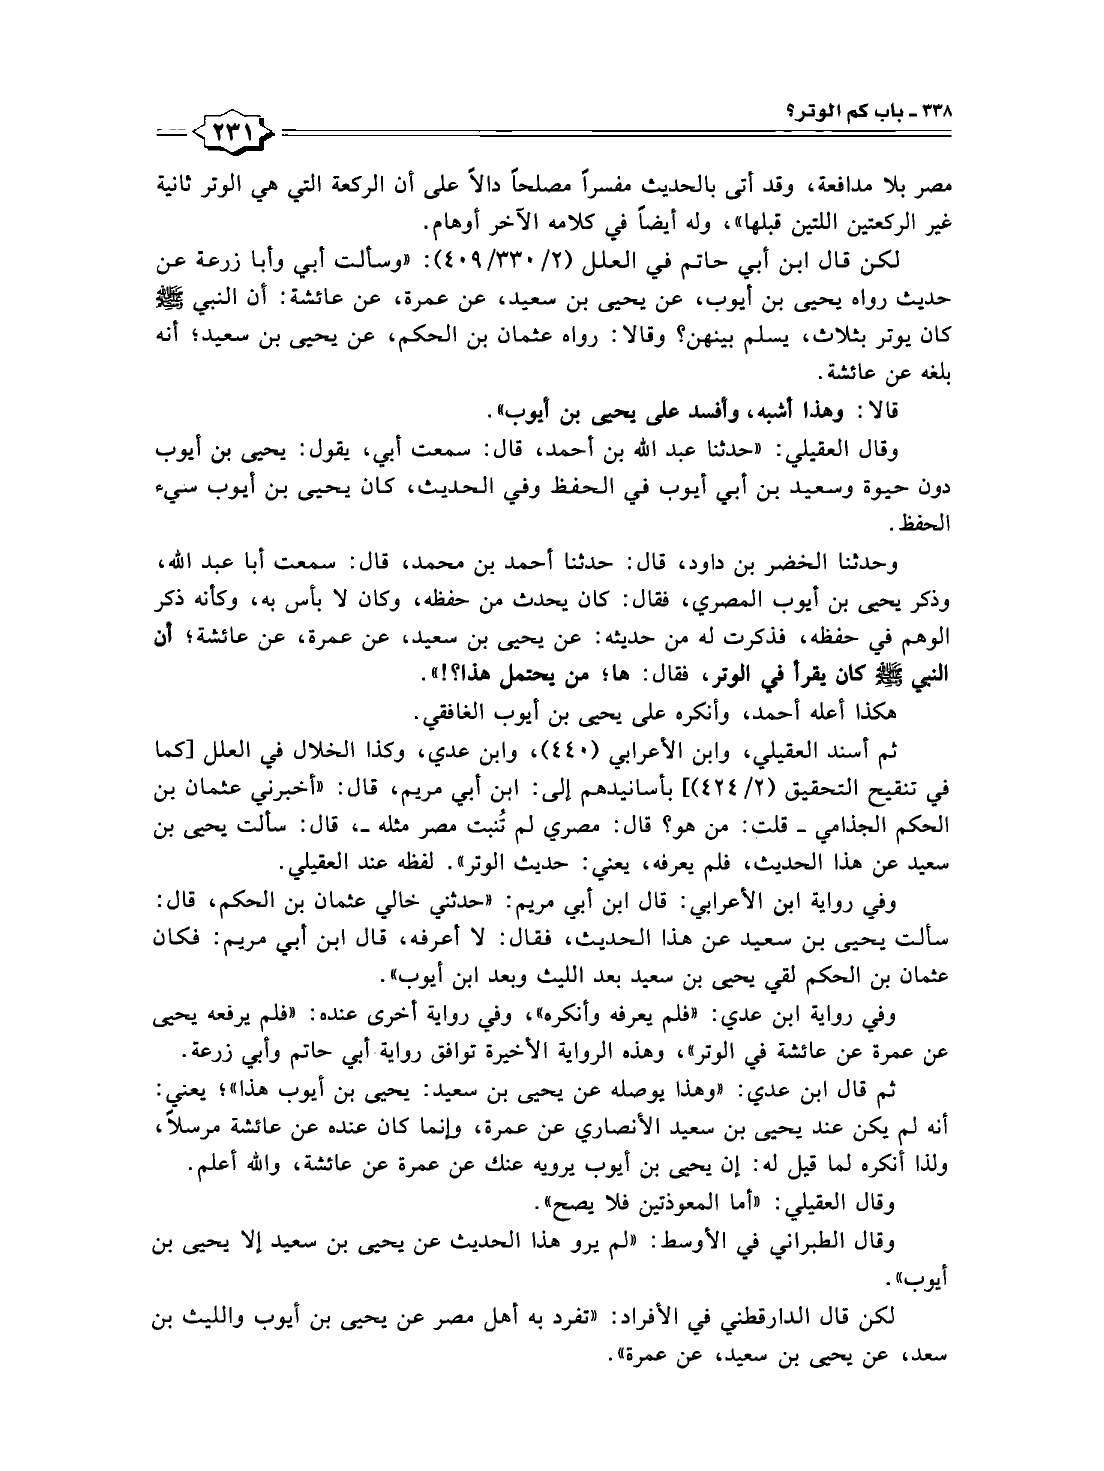 ٣٣٨ - باب كم الوتر؟
٢٣١
مصر بلا مدافعة، وقد أتى بالحديث مفسراً مصلحاً دالاً على أن الركعة التي هي الوتر ثانية
غير الركعتين اللتين قبلها»، وله أيضاً في كلامه الآخر أوهام.
لكن قال ابن أبي حاتم في العلل (٢/ ٣٣٠/ ٤٠٩): «وسألت أبي وأبا زرعة عن
حديث رواه يحيى بن أيوب، عن يحيى بن سعيد، عن عمرة، عن عائشة: أن النبي ﷺ
كان يوتر بثلاث، يسلم بينهن؟ وقالا: رواه عثمان بن الحكم، عن يحيى بن سعيد؛ أنه
بلغه عن عائشة.
قالا: وهذا أشبه، وأفسد على يحيى بن أيوب».
وقال العقيلي: «حدثنا عبد الله بن أحمد، قال: سمعت أبي، يقول: يحيى بن أيوب
دون حيوة وسعيد بن أبي أيوب في الحفظ وفي الحديث، كان يحيى بن أيوب سيء
الحفظ.
وحدثنا الخضر بن داود، قال: حدثنا أحمد بن محمد، قال: سمعت أبا عبد الله،
وذكر يحيى بن أيوب المصري، فقال: كان يحدث من حفظه، وكان لا بأس به، وكأنه ذكر
الوهم في حفظه، فذكرت له من حديثه: عن يحيى بن سعيد، عن عمرة، عن عائشة؛ أن
النبي ﷺ كان يقرأ في الوتر، فقال: ها؛ من يحتمل هذا؟!».
هكذا أعله أحمد، وأنكره على يحيى بن أيوب الغافقي.
ثم أسند العقيلي، وابن الأعرابي (٤٤٠)، وابن عدي، وكذا الخلال في العلل [كما
في تنقيح التحقيق (٢/ ٤٢٤)] بأسانيدهم إلى: ابن أبي مريم، قال: «أخبرني عثمان بن
الحكم الجذامي - قلت: من هو؟ قال: مصري لم تُنبت مصر مثله -، قال: سألت يحيى بن
سعيد عن هذا الحديث، فلم يعرفه، يعني: حديث الوتر». لفظه عند العقيلي.
وفي رواية ابن الأعرابي: قال ابن أبي مريم: «حدثني خالي عثمان بن الحكم، قال:
سألت يحيى بن سعيد عن هذا الحديث، فقال: لا أعرفه، قال ابن أبي مريم: فكان
عثمان بن الحكم لقي يحيى بن سعيد بعد الليث وبعد ابن أيوب».
وفي رواية ابن عدي: «فلم يعرفه وأنكره»، وفي رواية أخرى عنده: «فلم يرفعه يحيى
عن عمرة عن عائشة في الوتر»، وهذه الرواية الأخيرة توافق رواية أبي حاتم وأبي زرعة.
ثم قال ابن عدي: «وهذا يوصله عن يحيى بن سعيد: يحيى بن أيوب هذا»؛ يعني:
أنه لم يكن عند يحيى بن سعيد الأنصاري عن عمرة، وإنما كان عنده عن عائشة مرسلاً،
ولذا أنكره لما قيل له: إن يحيى بن أيوب يرويه عنك عن عمرة عن عائشة، والله أعلم.
وقال العقيلي: «أما المعوذتين فلا يصح».
وقال الطبراني في الأوسط: «لم يرو هذا الحديث عن يحيى بن سعيد إلا يحيى بن
أيوب».
لكن قال الدارقطني في الأفراد: «تفرد به أهل مصر عن يحيى بن أيوب والليث بن
سعد، عن يحيى بن سعيد، عن عمرة».